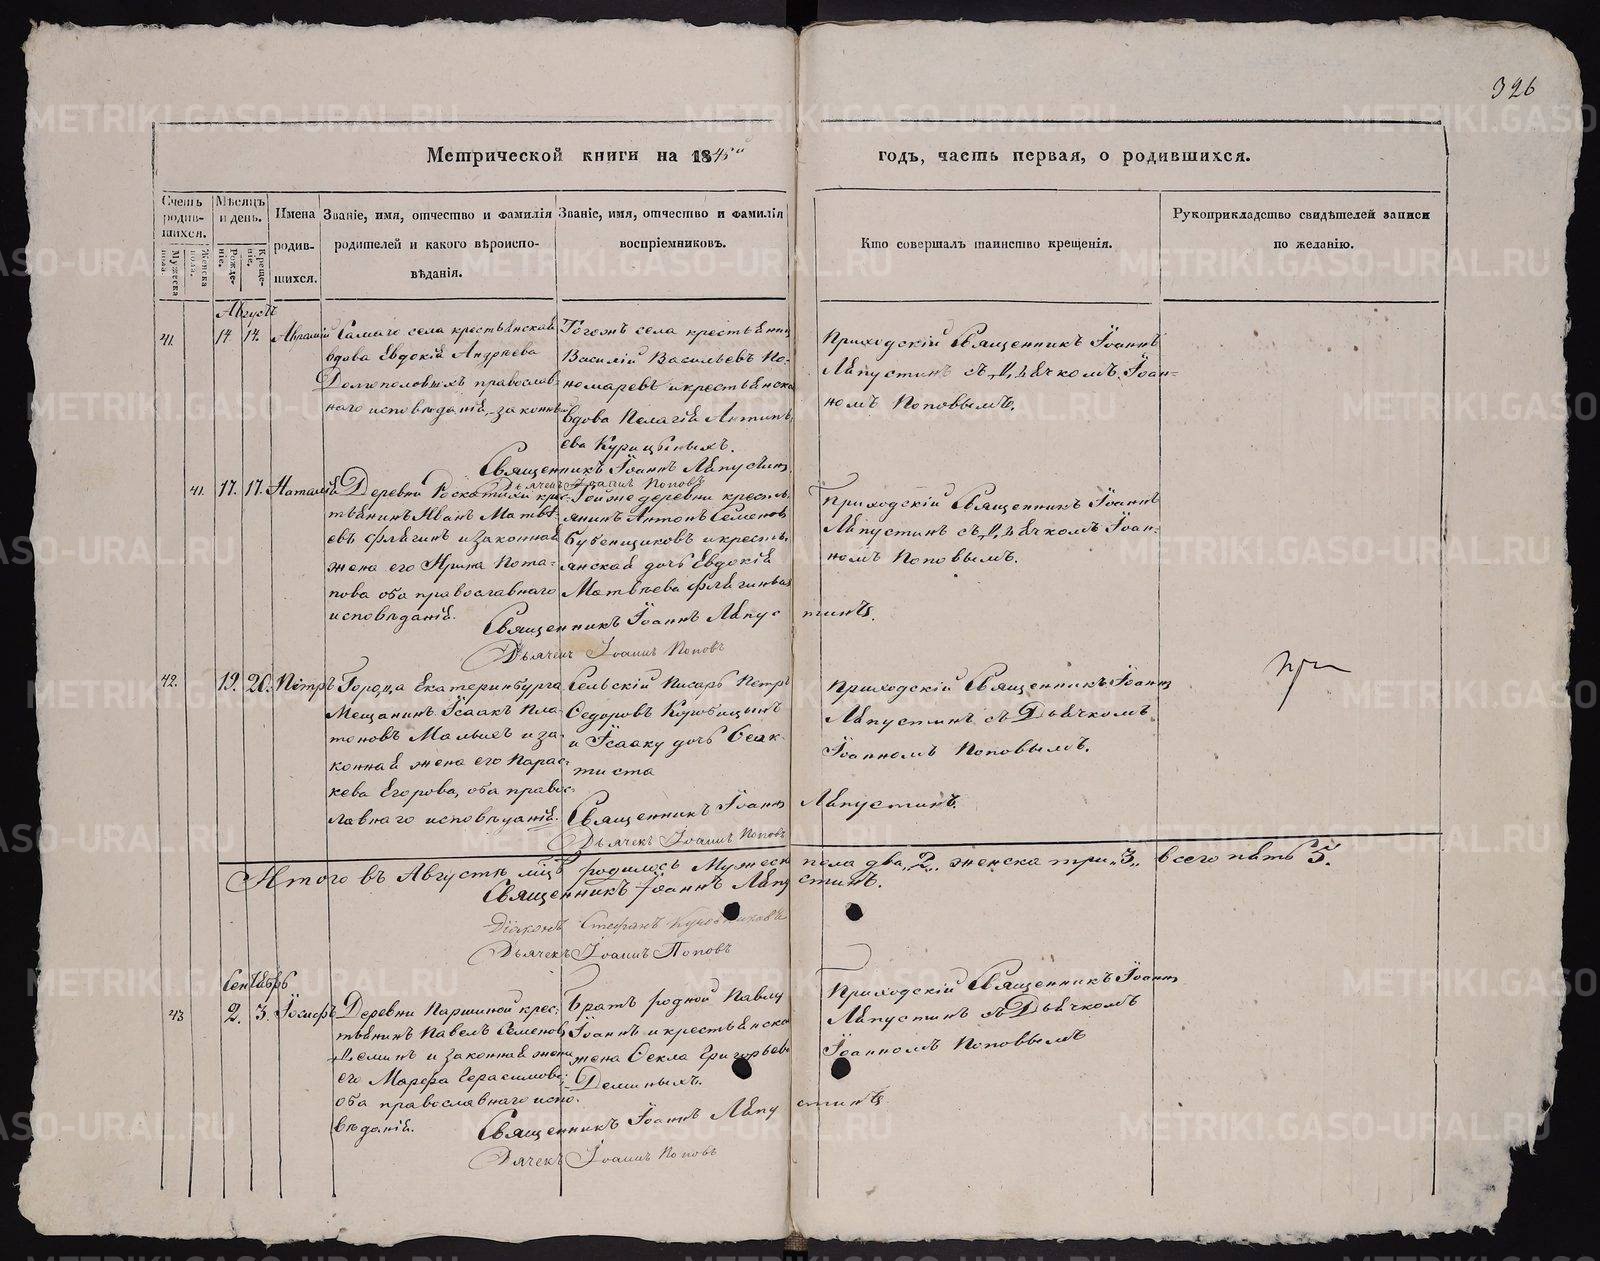 326
Метрической книги на 1845й годъ, часть первая, о родившихся.
Счетъ родив-шихся.
Мужеска пола.
Женска пола.
Мѣсяцъ и день.
Рожде-ніе.
Креще-ніе.
Имена родив-шихся.
Званіе, имя, отчество и фамилія
родителей и какого вѣроиспо-
вѣданія.
Званіе, имя, отчество и фамилія
воспріемниковъ.
Кто совершалъ таинство крещенія.
Рукоприкладство свидѣтелей записи
по желанію.
Августъ
41. 14. 14. Авраамій
Самаго села крестьянская
вдова Евдокія Андреева
Долгополовыхъ православ-
наго исповѣданія,
Тогожъ села крестьянинъ
Василій Васильевъ По-
номаревъ и крестьянска
вдова Пелагія Антипь-
ева Курицыныхъ.
Приходскій Священникъ Іоаннъ
Ляпустинъ съ Дьячкомъ Іоан-
номъ Поповымъ.
Священникъ Іоаннъ Ляпустинъ
Дьячекъ Іоаннъ Поповъ
41. 17. 17. Наталія
Деревни крес-
тьянинъ Иванъ Матвѣ-
евъ Флягинъ и законная
жена его Ирина Пота-
пова оба православнаго
исповѣданія.
Тойже деревни кресть-
янинъ Антонъ Семеновъ
Бубенщиковъ и кресть-
янская дочь Евдокія
Матвѣева Флягиныхъ
Приходскій Священникъ Іоаннъ
Ляпустинъ съ Дьячкомъ Іоан-
номъ Поповымъ.
Священникъ Іоаннъ Ляпустинъ.
Дьячекъ Іоаннъ Поповъ
42. 19. 20. Петръ
Города Екатеринбурга
Мещанинъ Ісаакъ Пла-
тоновъ и за-
конная жена его Парас-
кева Егорова, оба правос-
лавнаго исповѣданія.
Сельскій Писарь Петръ
Ѳедоровъ
и Ісааку дочь Ѳеок-
тиста
Приходскій Священникъ Іоаннъ
Ляпустинъ съ Дьячкомъ
Іоанномъ Поповымъ.
Священникъ Іоаннъ Ляпустинъ.
Дьячекъ Іоаннъ Поповъ
Итого въ Августѣ мцѣ родилось Мужеск пола два „2„ женска три „3„ всего пять 5.
Священникъ Іоаннъ Ляпустинъ.
Діаконъ Стефанъ
Дьячекъ Іоаннъ Поповъ
Сентябрь
43 2. 3. Іосифъ
Деревни Паршиной крес-
тьянинъ Павелъ Семеновъ
Деминъ и законная жена
его Марѳа Герасимова,
оба православнаго испо-
вѣданія.
Братъ родной Павлу
Іоаннъ и крестьянска
жена Ѳекла Григорьева
Деминыхъ.
Приходскій Священникъ Іоаннъ
Ляпустинъ съ Дьячкомъ
Іоанномъ Поповымъ
Священникъ Іоаннъ Ляпустинъ
Дьячекъ Іоаннъ Поповъ
METRIKI.GASO-URAL.RU